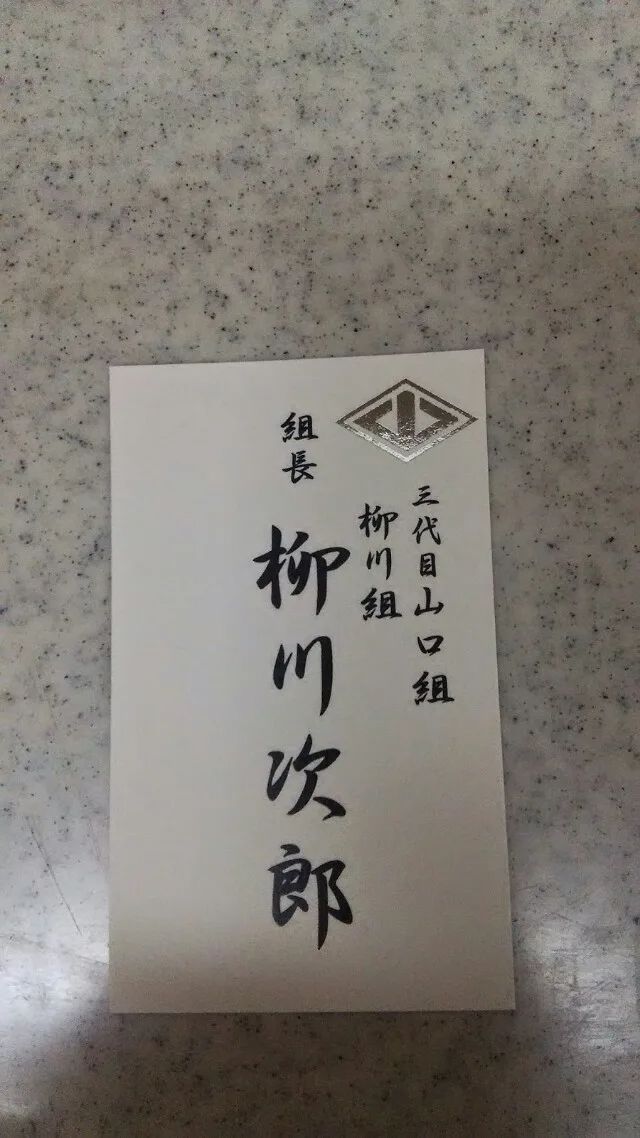 三代目山口組
柳川組
組長 柳川次郎